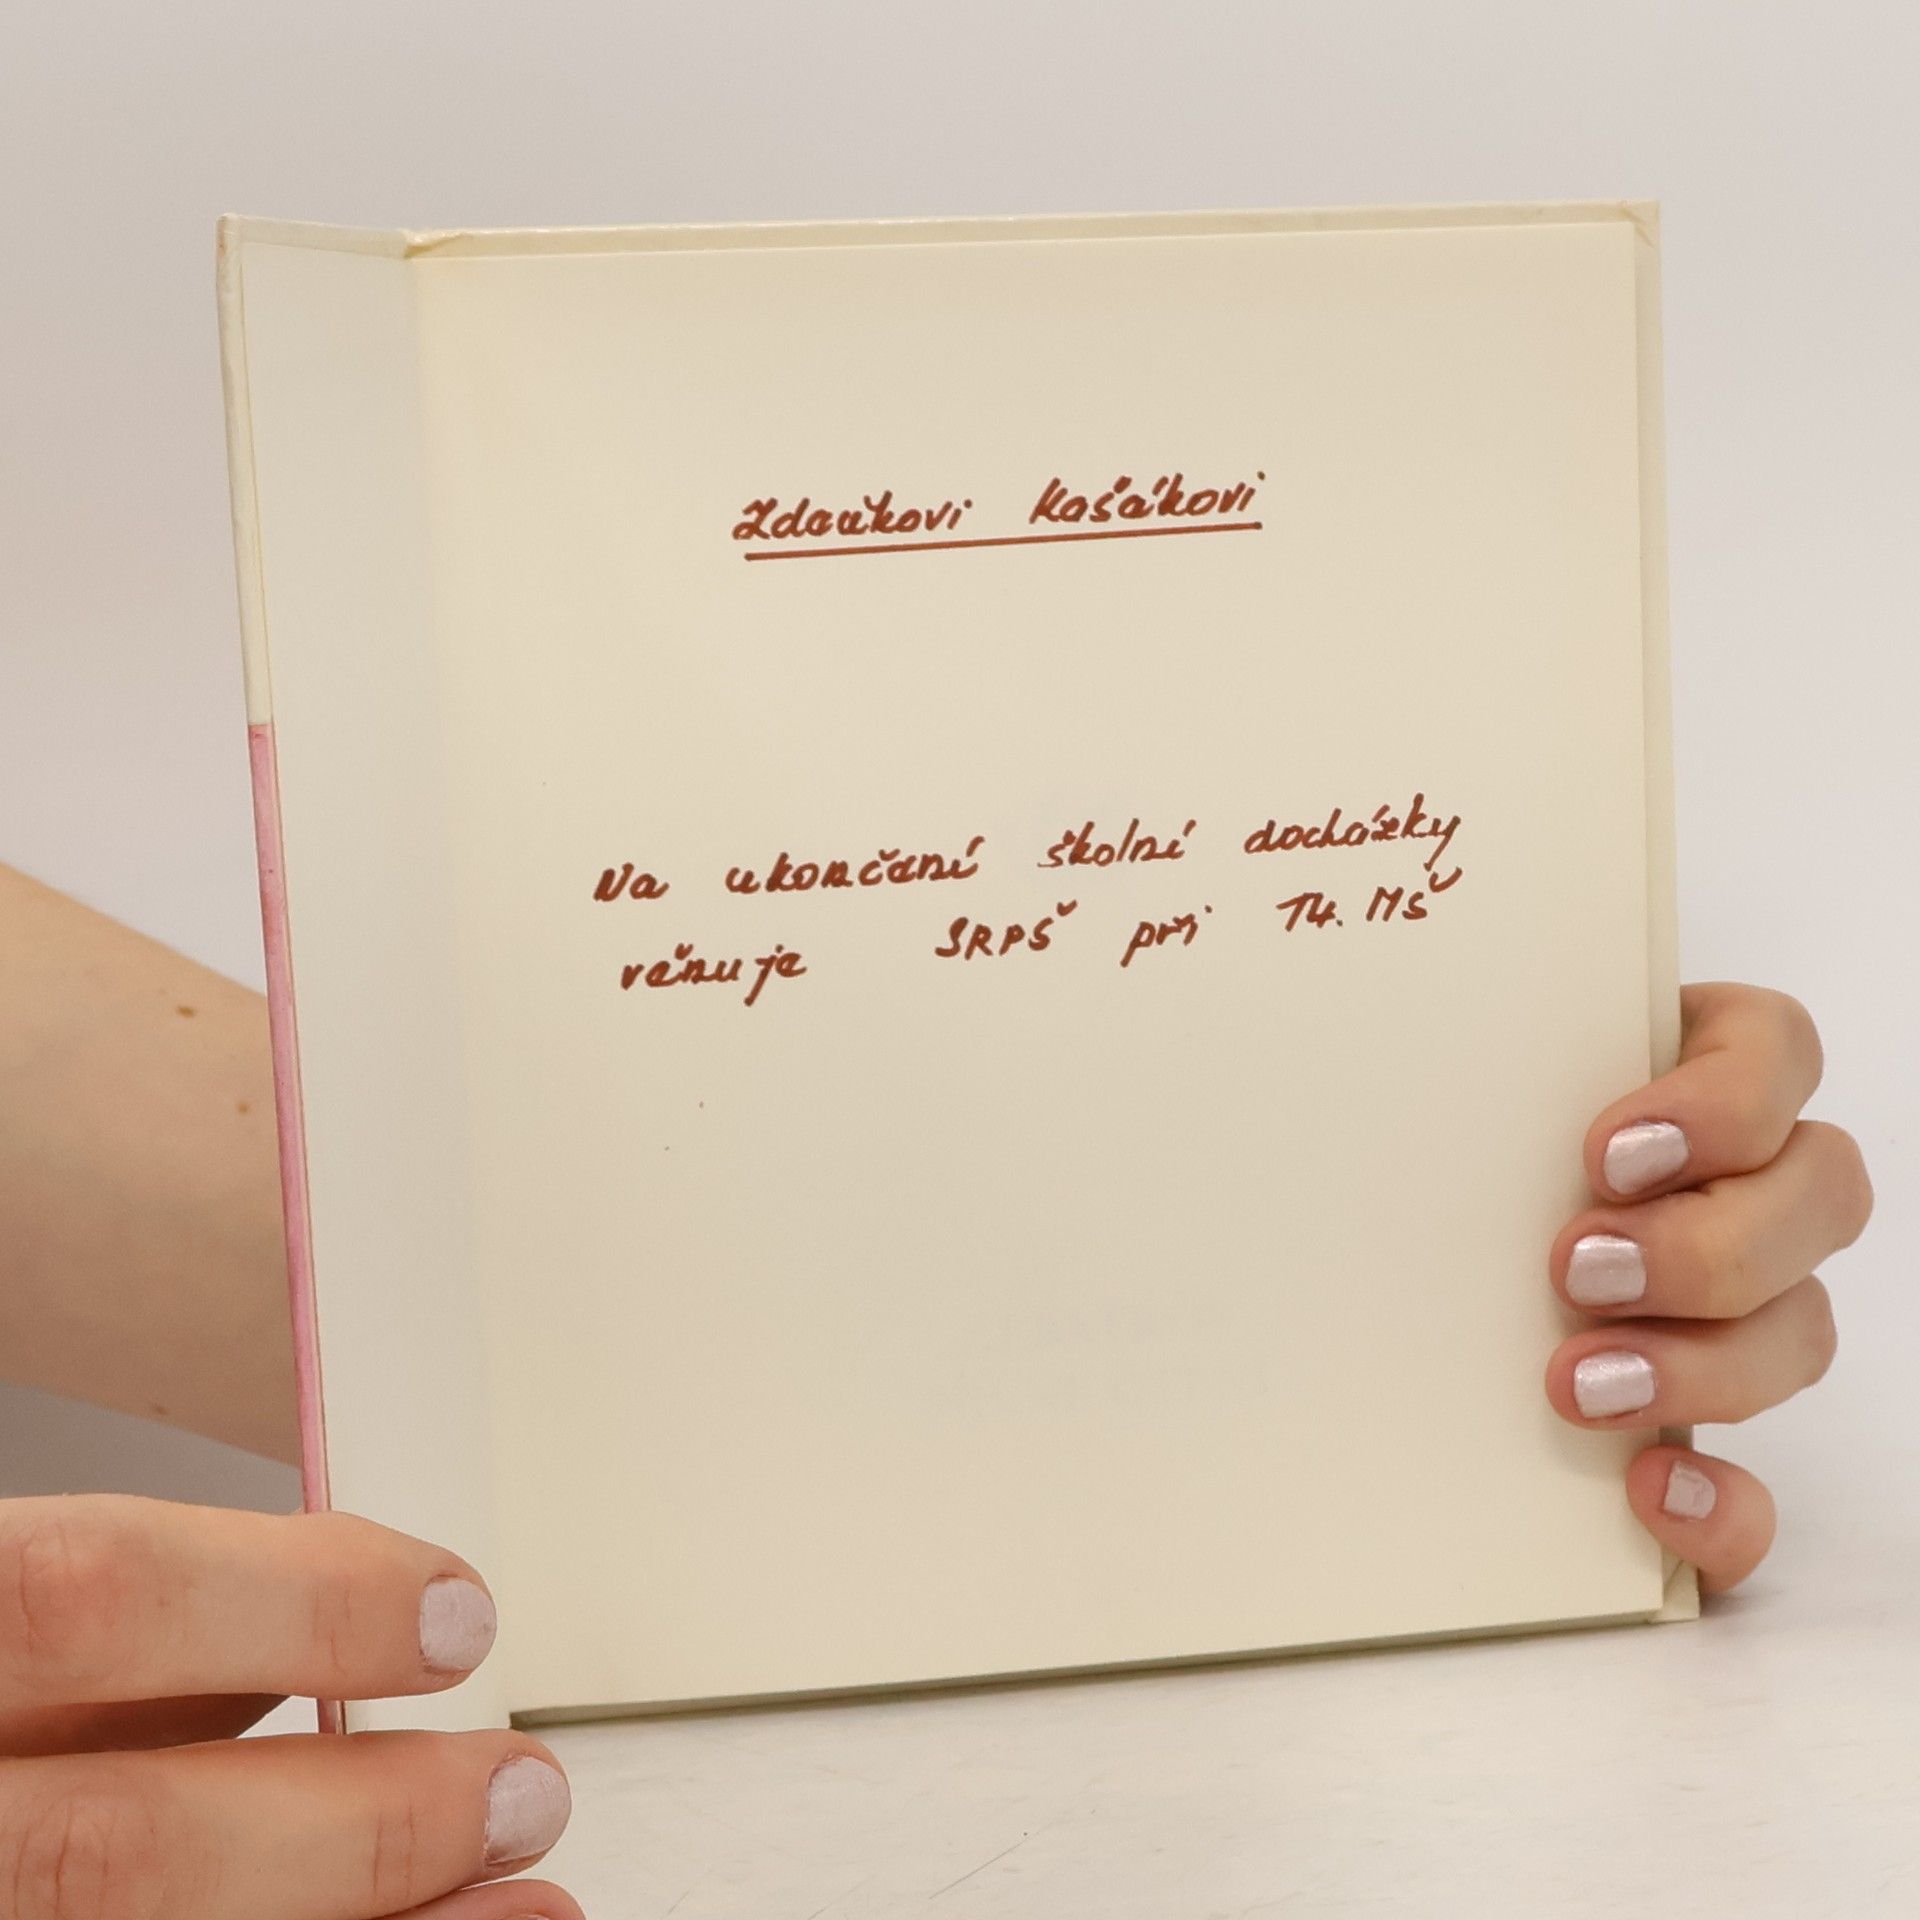 Zdeňkovi Košákovi
Na ukončení školní docházky
věnuje SRPŠ při 14. MŠ